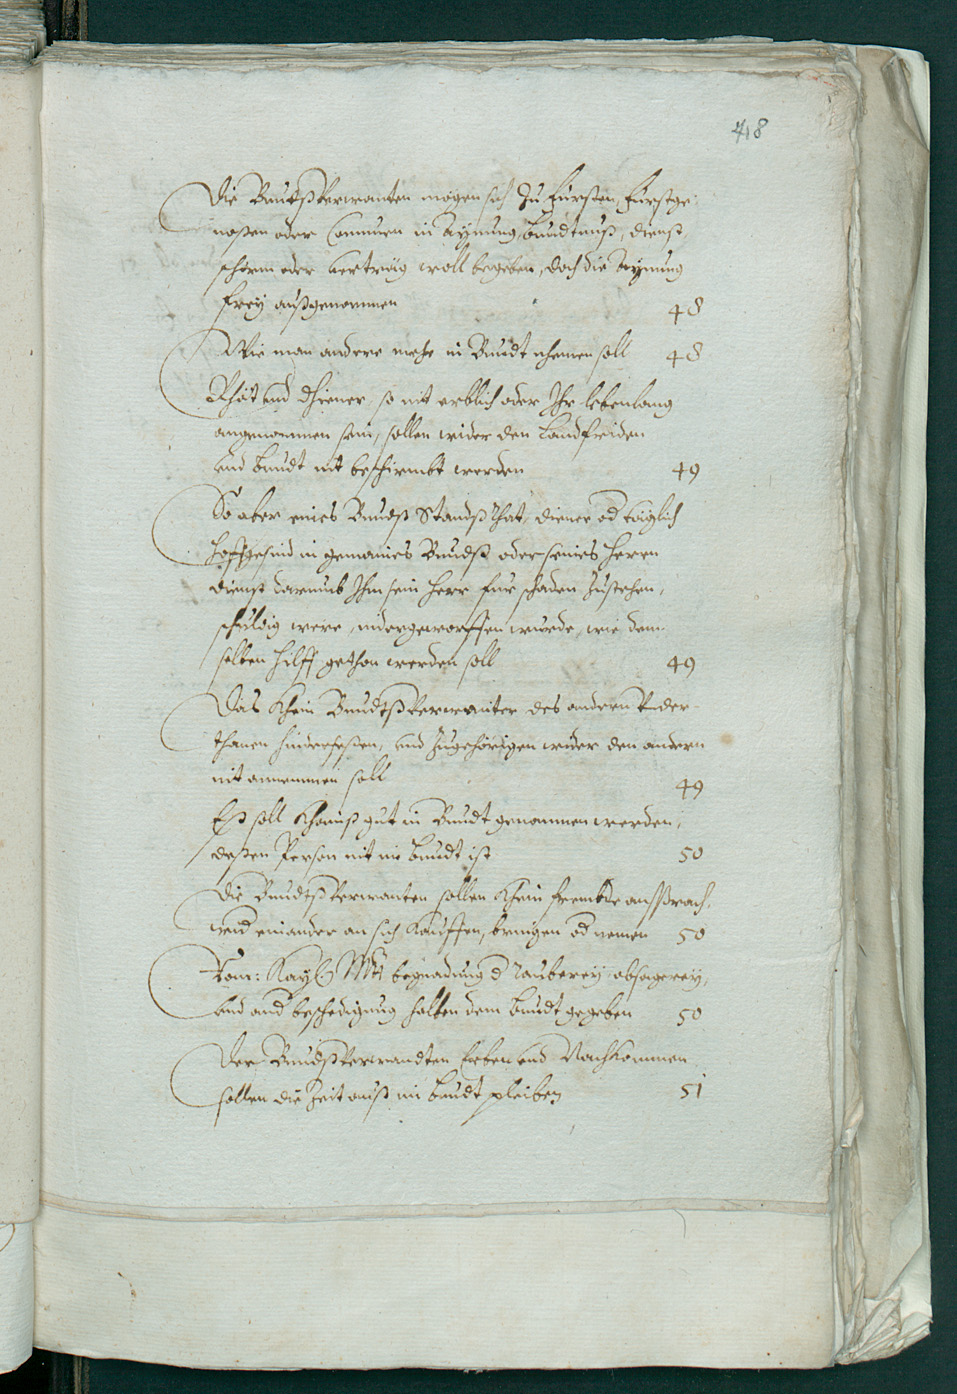 418
Die Bundtßverwanten mögen sich zu Fürsten, Fürstge-
noßen oder Communen in Aynung, Bundtnuß, dienst,
schirm oder vertrag woll begeben, doch die Aynung
frey außgenommen 48
Wie man andere mehr in Bundt nhemen soll 48
Rhät und Dhiener, so nit erblich oder Ihr lebenlang
angenommen sein, sollen wider den Landtfriden
und Bundt nit beschirmbt werden 49
So aber eines Bundß Standß Rhat, diener od täglich
Hoffgesind in gemaines Bundß oder seines Herrn
dienst darumb Ihm sein Herr für schaden zustehen,
schuldig were, nidergeworffen wurde, wie dem-
selben hilff gethon werden soll 49
Das Khein Bundtßverwanter des andern Under-
thanen hindersesßen, und zugehörigen wider den andern
nit annemmen soll 49
Eß soll Khainß gut in Bundt genommen werden,
deßen Person nit im Bundt ist 50
Die Bundtßverwanten sollen Khein frembde ansprach,
wid einander an sich kauffen, bringen od nemen 50
Rom: Kay: Mtt begnadung d Rauberey absagerey,
und and beschedigung halben dem Bundt gegeben 50
Der Bundßverwandten Erben und Nachkommen
sollen die Zeit auß im Bundt pleiben 51